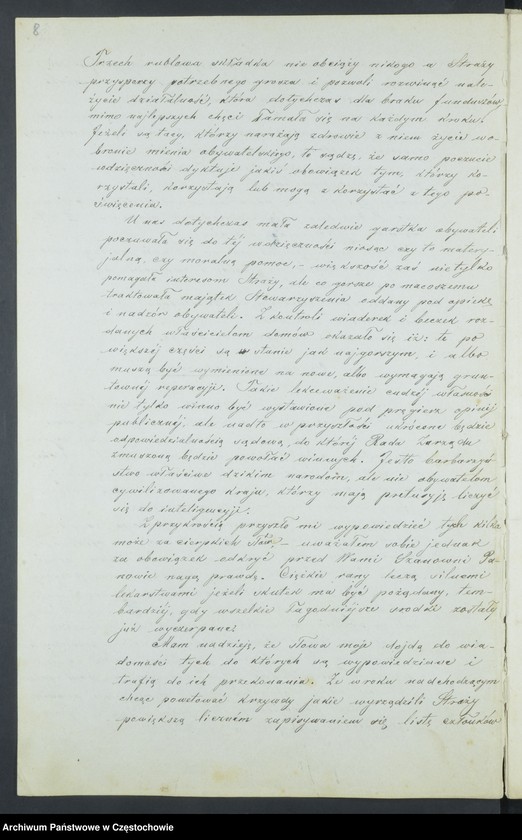 8
Trzech rublowa składka nie obciąży nikogo a Straży
przysporzy potrzebnego grosza i pozwoli rozwinąć nale-
życie działalność, która dotychczas dla braku funduszów,
mimo najlepszych chęci łamała się na każdym kroku.
Jeżeli są tacy, którzy narażają zdrowie a z niem życie wo-
bronie mienia obywatelskiego, to sądzę, że samo poczucie
wdzięczności dyktuje jakiś obowiązek tym, którzy ko-
rzystali, korzystają lub mogą z korzystać z tego po-
święcenia.
U nas dotychczas mała zaledwie garstka obywateli
poczuwała się do tej wdzięczności niosąc czy to matery-
jalną, czy moralną pomoc, - większość zaś nie tylko
pomagała interesom Straży, ale co gorsze po macoszemu
traktowała majątek Stowarzyszenia oddany pod opiekę
i nadzór obywateli. Z kontroli wiaderek i beczek roz-
danych właścicielom domów okazało się iż: te po
większej części są w stanie jak najgorszym, i albo
muszą być wymienione na nowe, albo wymagają grun-
townej reperacyji. Takie lekceważenie cudzej własności
nie tylko winno być wystawione pod pręgierz opinji
publicznej, ale nadto w przyszłości ukrócone będzie
odpowiedzialnością sądową, do której Rada Zarządu
zmuszoną będzie powołać winnych. Jest to barbarzyń-
stwo właściwe dzikim narodom, ale nie obywatelom
cywilizowanego kraju, którzy mają pretensyję liczyć
się do inteligencyi.
Z przykrością przyszło mi wypowiedzieć tych kilka
może za cierpkich słów, - uważałem sobie jednak
za obowiązek odkryć przed Wami Szanowni Pa-
nowie nagą prawdę. Ciężkie rany leczą silnemi
lekarstwami jeżeli skutek ma być pożądany, tem-
bardziej, gdy wszelkie łagodniejsze środki zostały
już wyczerpane.
Mam nadzieję, że słowa moje dojdą do wia-
domości tych do których są wypowiedziane i
trafią do ich przekonania. Że w roku nadchodzącym
chcąc powetować krzywdy jakie wyrządzili Straży
powiększą licznem zapisywaniem się, listę członków
Archiwum Państwowe w Częstochowie